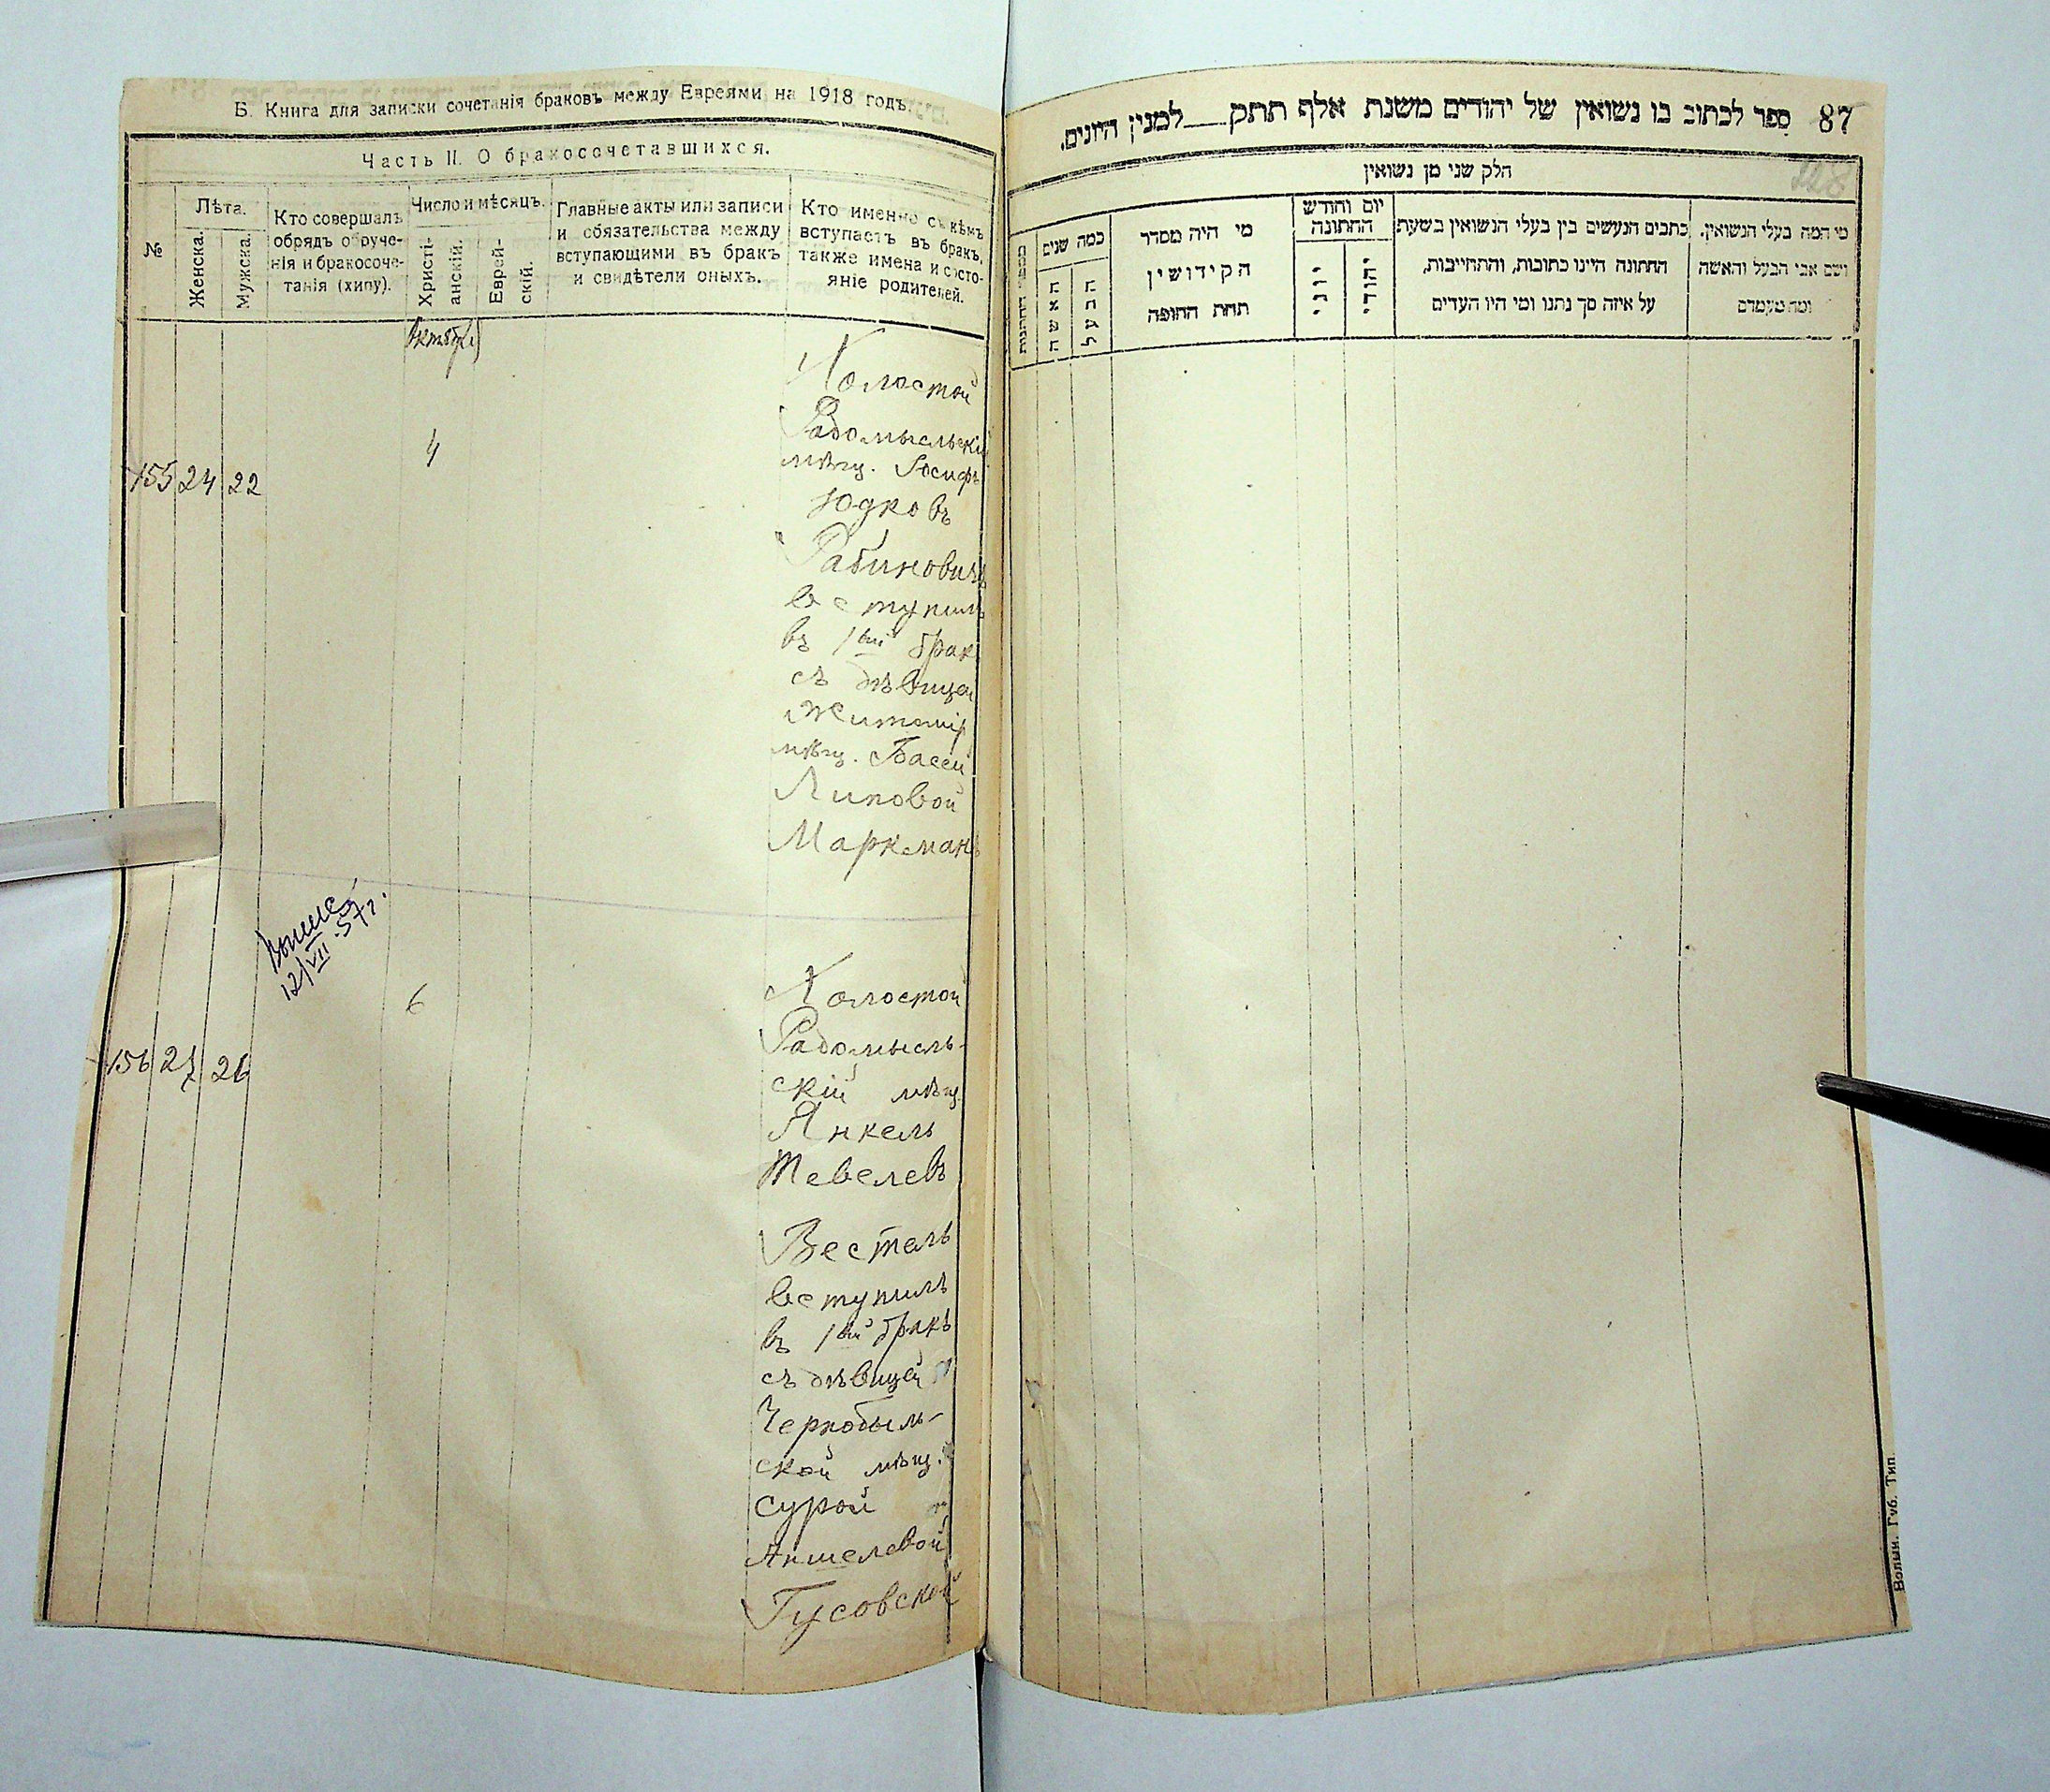 Б. Книга для записки сочетанія браковъ между Евреями на 1918 годъ.
Часть II. О бракосочетавшихся.
№
Лѣта.
Женска.
Мужска.
Кто совершалъ
обрядъ обруче-
нія и бракосоче-
танія (хипу).
Число и мѣсяцъ.
Христі-
анскій.
Еврей-
скій.
Главные акты или записи
и обязательства между
вступающими въ бракъ
и свидѣтели оныхъ.
Кто именно съ кѣмъ
вступаетъ въ бракъ,
также имена и состо-
яніе родителей.
Октября
155 24 22
4
Холостой
Радомысльскій
мѣщ. Іосифъ
Юдковъ
Рабиновичъ
вступилъ
въ 1ый брак
съ дѣвицей
Житомір
мѣщ. Басей
Липовой
Маркманъ
12/VII.57г.
156 27 26
6
Холостой
Радомысль-
скій мѣщ.
Янкель
Тевелевъ
Вестель
вступилъ
въ 1ый бракъ
съ дѣвицей
Чернобыль-
ской мѣщ.
Сурой
Аншелевой
Гусовской
87 ספר לכתוב בו נשואין של יהודים משנת אלף תתק___למנין היונים.
228
חלק שני מן נשואין
מספר החתונות
כמה שנים
האשה
הבעל
מי היה מסדר
הקידושין
תחת החופה
יום וחודש
החתונה
יוני
יהודי
כתבים הנעשים בין בעלי הנשואין בשעת
החתונה היינו כתובות, והתחייבות,
על איזה סך נתנו ומי היו העדים
מי המה בעלי הנשואין.
ושם אבי הבעל והאשה
ומה מעמדם
Волын. Губ. Тип.